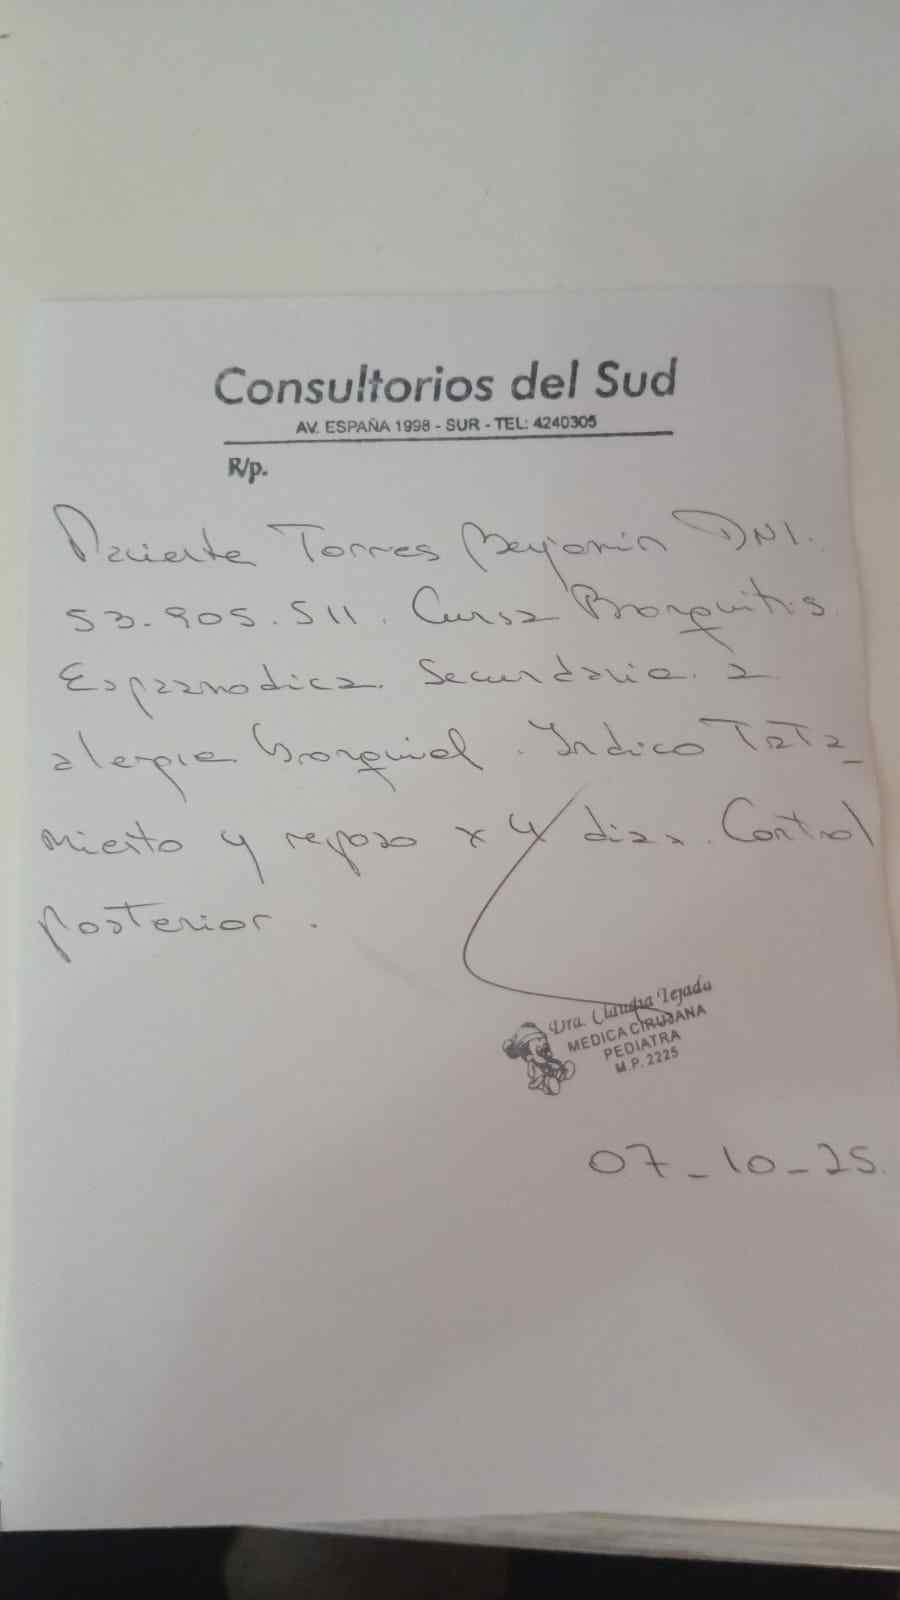 Consultorios del Sud
AV. ESPAÑA 1998 - SUR - TEL: 4240305
R/p.
Paciente Torres Benjamin DNI.
53.905.511. Cursa Bronquitis
Espasmodica. Secundaria. a
alergia bronquial. Indico Trata_
miento y reposo x 4 dias. Control
posterior.
Dra. Claudia Tejada
MEDICA CIRUJANA
PEDIATRA
M.P. 2225
07_10_25.